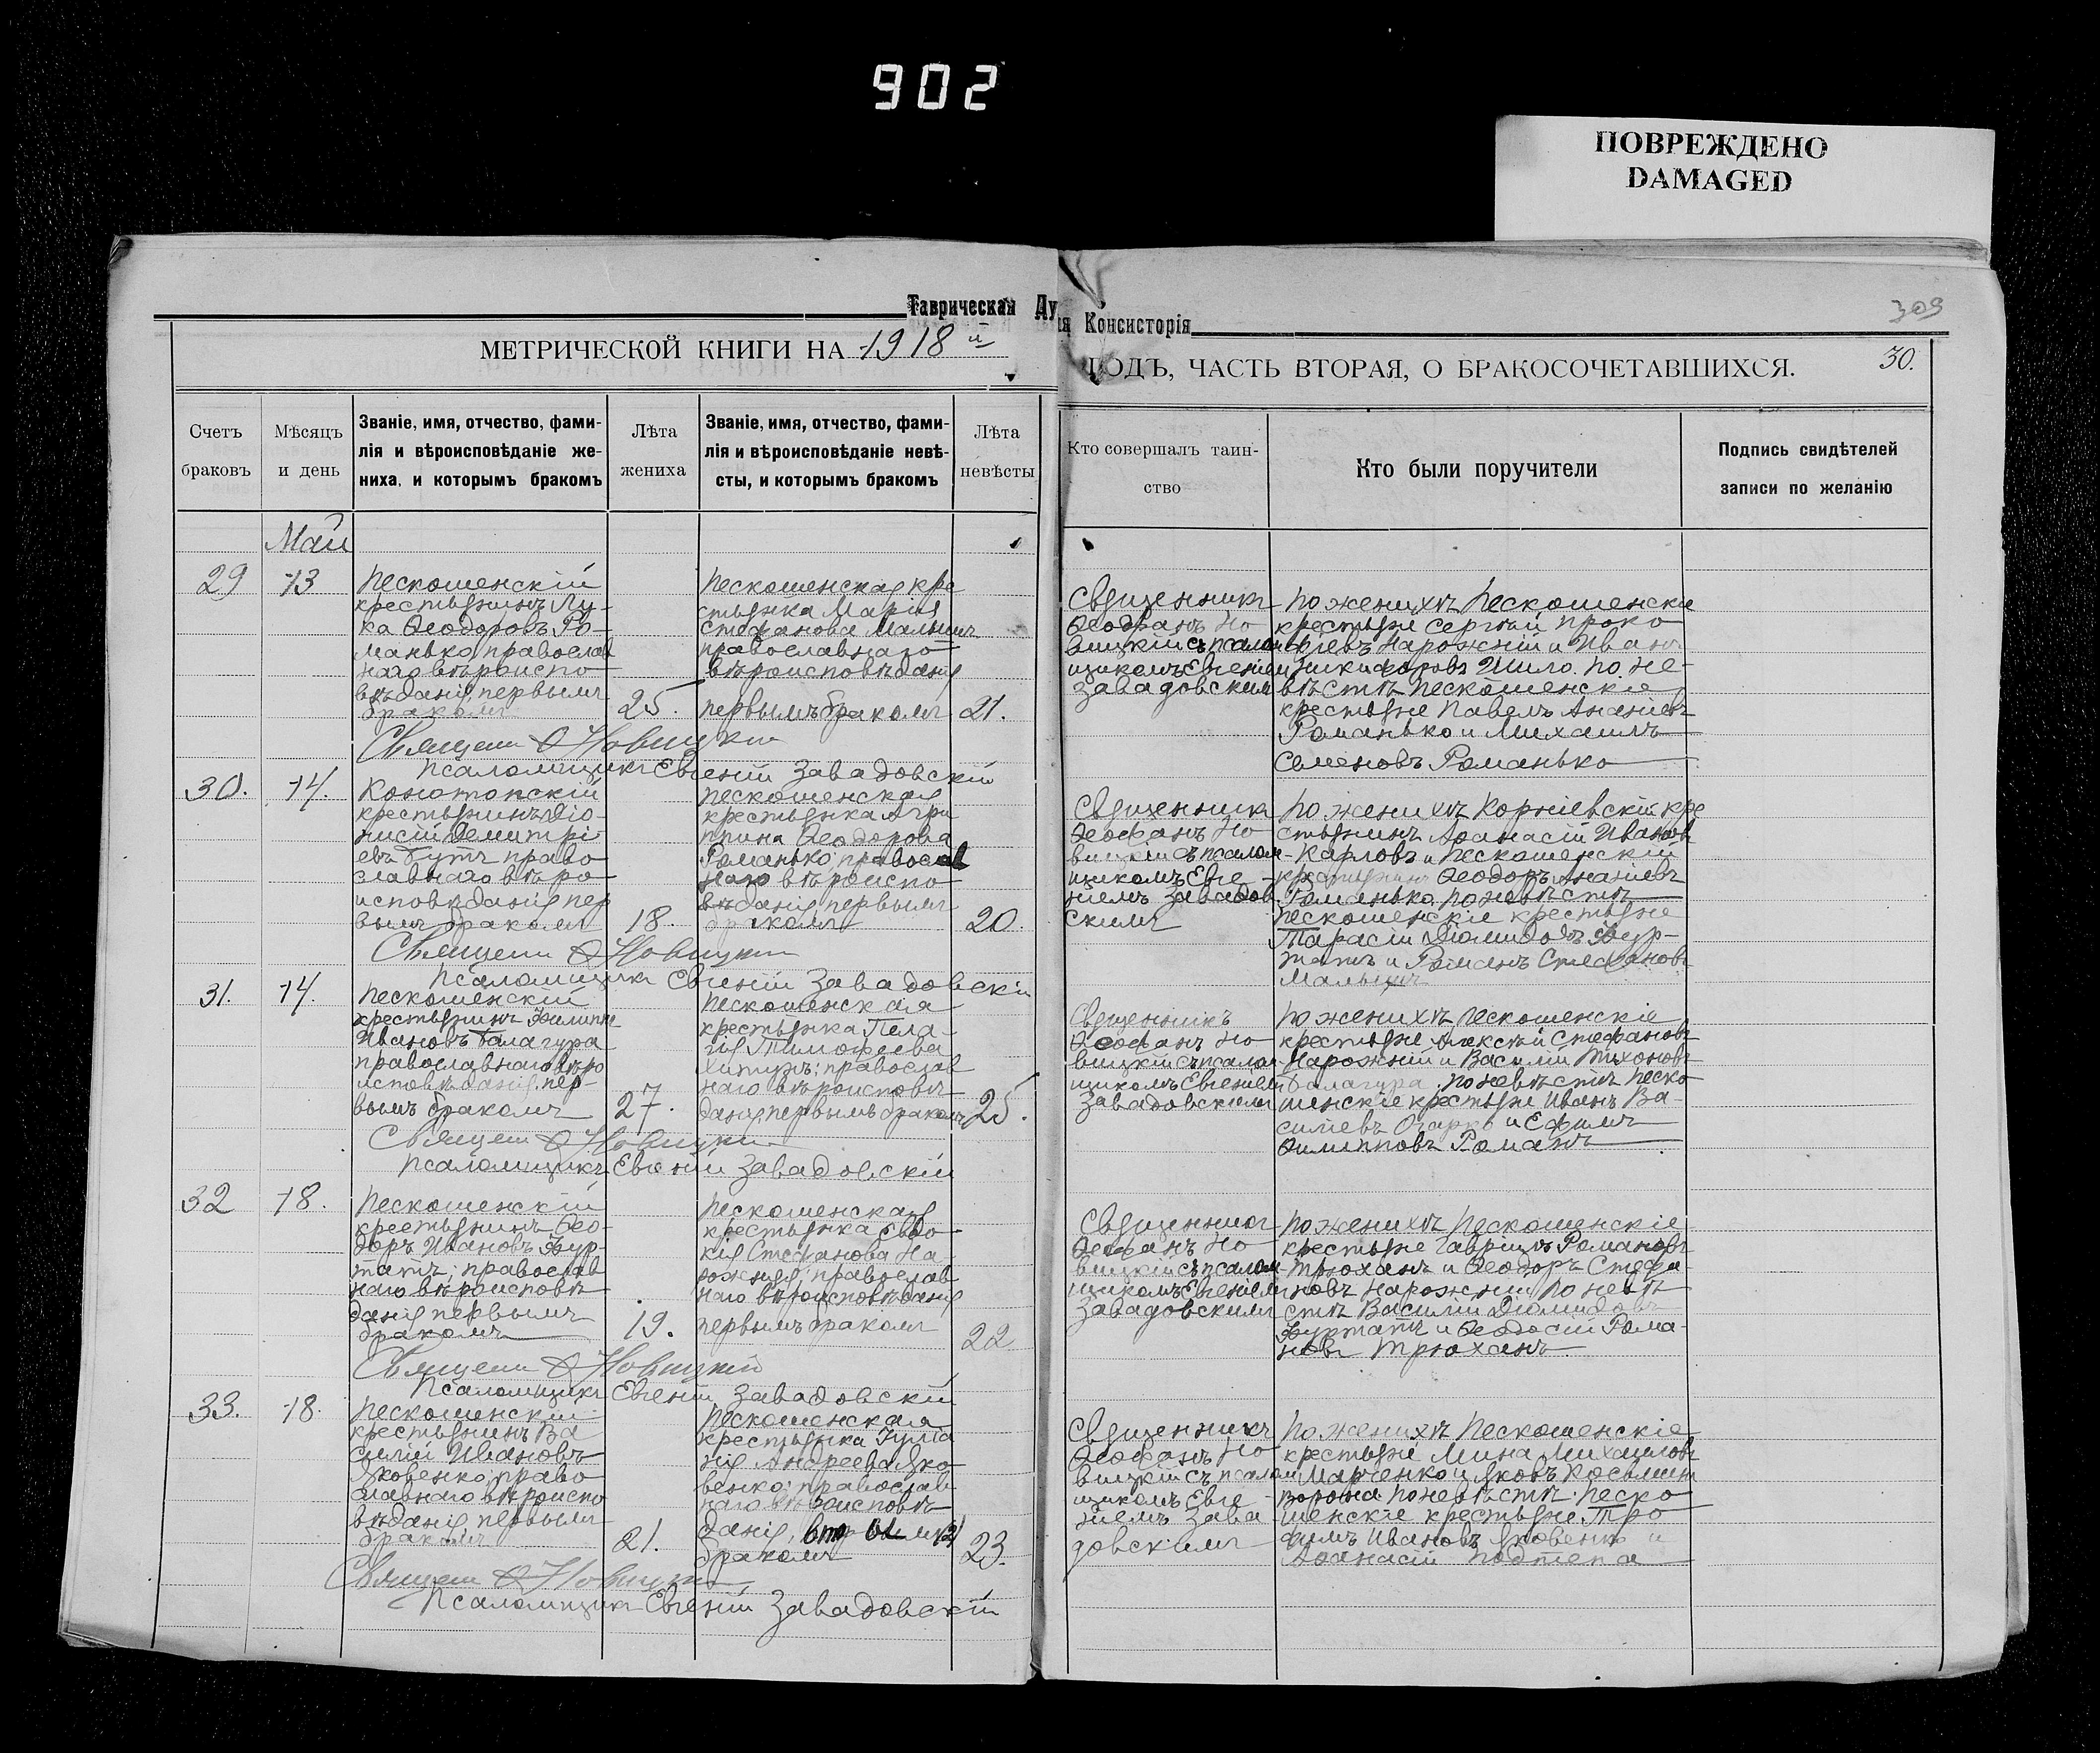 902
ПОВРЕЖДЕНО
DAMAGED
Таврическая Ду
ія Консисторія
309
МЕТРИЧЕСКОЙ КНИГИ НА 1918й
ГОДЪ, ЧАСТЬ ВТОРАЯ, О БРАКОСОЧЕТАВШИХСЯ.
30.
Счетъ
браковъ
Мѣсяцъ
и день
Званіе, имя, отчество, фами-
лія и вѣроисповѣданіе же-
ниха, и которымъ бракомъ
Лѣта
жениха
Званіе, имя, отчество, фами-
лія и вѣроисповѣданіе невѣ-
сты, и которымъ бракомъ
Лѣта
невѣсты
Кто совершалъ таин-
ство
Кто были поручители
Подпись свидѣтелей
записи по желанію
Май
29
13
Пескошенскій
крестьянинъ Лу-
ка Ѳеодоровъ Ро-
манько, православ
наго вѣроиспо
вѣданія, первымъ
бракомъ
25.
Пескошенская кре
стьянка Марія
Стефанова Малышъ
православнаго
вѣроисповѣданія
первымъ бракомъ
21.
Священникъ
Ѳеофанъ Но
вицкій съ псалом
щикомъ Евгеніем
Завадовскимъ
По женихѣ Пескошенскіе
крестьяне Сергѣй Проко
фіевъ Нарожній и Иванъ
Никифоровъ Шило. По не-
вѣстѣ Пескошенскіе
крестьяне Павелъ Ананіевъ
Романько и Михаилъ
Семеновъ Романько
Священ Ѳ Новицкій
Псаломщикъ Евгеній Завадовскій
30.
14.
Конотопскій
крестьянинъ Діо-
нисій Димитрі-
евъ Бутъ право
славнаго вѣро
исповѣданія пер
вымъ бракомъ
18.
Пескошенская
крестьянка Агри
ппина Ѳеодорова
Романько; православ
наго вѣроиспо
вѣданія первымъ
бракомъ
20.
Священникъ
Ѳеофанъ Но
вицкій съ псалом
щикомъ Евге-
ніемъ Завадов
скимъ
По женихѣ Корніевскій кре
стьянинъ Аѳанасій Ивановъ
Карловъ и Пескошенскій
крестьянинъ Ѳеодоръ Ананіевъ
Романько, по невѣстѣ
Пескошенскіе крестьяне
Тарасій Діомидовъ Фур-
татъ и Романъ Стефановъ
Малышъ
Священ Ѳ Новицкій
Псаломщикъ Евгеній Завадовскій
31.
14.
Пескошенскій
крестьянинъ Филиппъ
Ивановъ Балагура
православнаго вѣро
исповѣданія, пер-
вымъ бракомъ
27.
Пескошенская
крестьянка Пела-
гія Тимофеева
православ
наго вѣроисповѣ
данія, первымъ бракомъ
25.
Священникъ
Ѳеофанъ Но
вицкій съ псалом
щикомъ Евгеніем
Завадовскимъ
По женихѣ Пескошенскіе
крестьяне Алексѣй Стефановъ
Нарожній и Василій Тихоновъ
Балагура. По невѣстѣ Песко
шенскіе крестьяне Иванъ Ва-
сильевъ Огарко и Ефимъ
Филипповъ Романъ
Священ Ѳ Новицкій
Псаломщикъ Евгеній Завадовскій
32
18.
Пескошенскій
крестьянинъ Ѳео-
доръ Ивановъ Фур-
татъ; православ
наго вѣроисповѣ
данія первымъ
бракомъ
19.
Пескошенская
крестьянка Евдо
кія Стефанова На-
рожняя; православ
наго вѣроисповѣданія
первымъ бракомъ
22
Священникъ
Ѳеофанъ Но
вицкій съ псалом
щикомъ Евгеніем
Завадовскимъ
По женихѣ Пескошенскіе
крестьяне Гавріилъ Романовъ
Трюханъ и Ѳеодоръ Стефа
новъ Нарожній По невѣ
стѣ Василій Діомидовъ
Фуртатъ и Ѳеодосій Рома-
новъ Трюханъ
Священ Ѳ Новицкій
Псаломщикъ Евгеній Завадовскій
33.
18.
Пескошенскій
крестьянинъ Ва
силій Ивановъ
Яковенко; право
славнаго вѣроиспо
вѣданія первымъ
бракомъ
21.
Пескошенская
крестьянка Іуліа
нія Андреева Яко
венко; православ
наго вѣроисповѣ
данія, вторымъ
бракомъ
23.
Священникъ
Ѳеофанъ Но
вицкій съ псалом
щикомъ Евге-
ніемъ Зава
довскимъ
По женихѣ Пескошенскіе
крестьяне Мина Михаиловъ
Марченко и Яковъ Косьминъ
Ворона По невѣстѣ Песко
шенскіе крестьяне Тро
фимъ Ивановъ Яковенко и
Аѳанасій
Священ Ѳ Новицкій
Псаломщикъ Евгеній Завадовскій